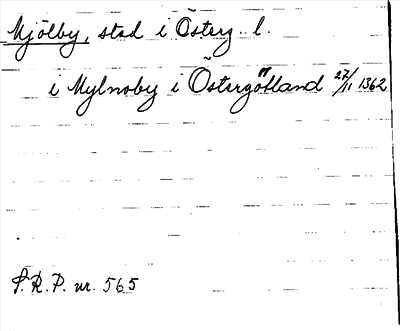 Mjölby, stad i Österg. l.
i Mylnoby i Östergötland 27/11 1362
S.R.P. nr. 565